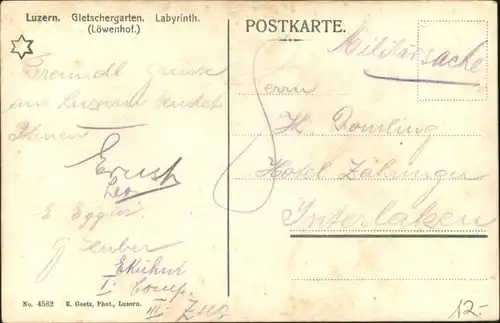 Luzern. Gletschergarten. Labyrinth.
(Löwenhof.)
POSTKARTE.
Militärsache
Freundl. Grüsse
aus Luzern sendet
Ihnen
Ernst
Leo
E Egger
G Huber
I. Comp.
III. Zug
Herrn
Hotel Zähringer
Interlaken
No. 4582 E. Goetz, Phot., Luzern.
12.-